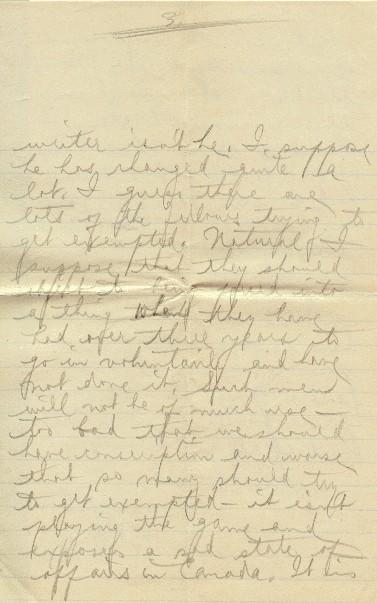 3.
writer isn't he. I suppose
he has changed quite a
lot. I guess there are
lots of the fellows trying to
get exempted. Naturally I
suppose that they should
object to being forced into
a thing when they have
had over three years to
go in voluntarily and have
not done it. Such men
will not be of much use —
too bad that we should
have conscription and worse
that so many should try
to get exempted — it isn't
playing the game and
exposes a sad state of
affairs in Canada. It is